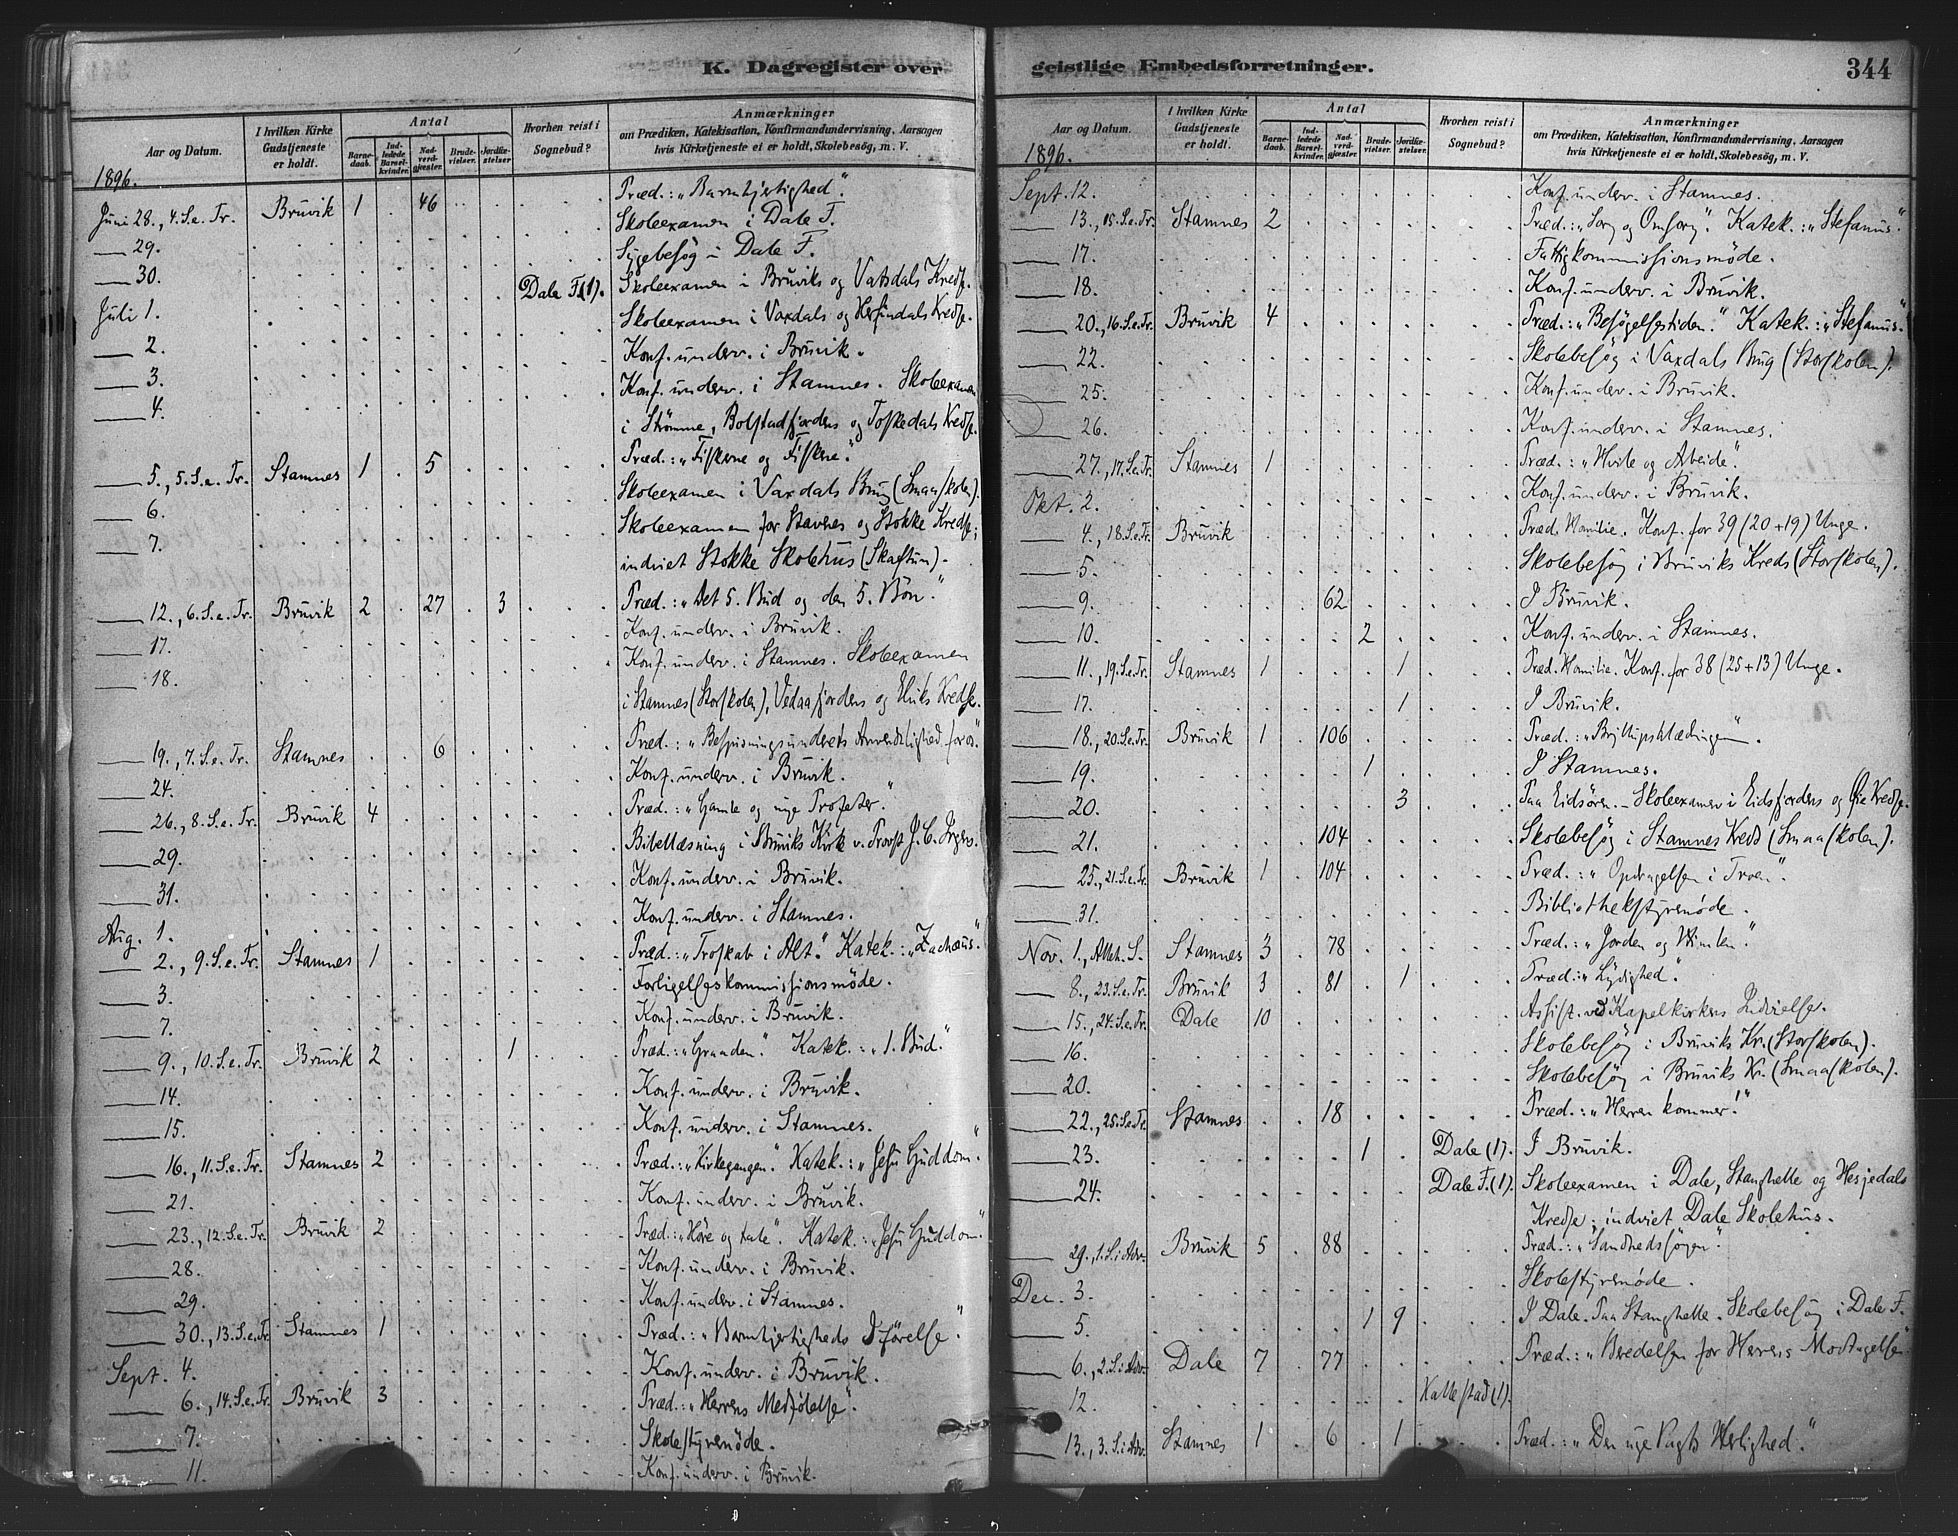 K. Dagregister over
Aar og Datum. I hvilken Kirke Gudstjeneste er holdt. Antal Barnedaab. Indledede Barselkvinder. Nadverdgjæster. Brudevielser. Jordfæstelser Hvorhen reist i Sognebud? Anmærkninger om Prædiken, Katekisation, Konfirmandundervisning, Aarsagen hvis Kirketjeneste ei er holdt, Skolebesøg, m. V.
1896.
Juni 28., 4. S. e. Tr. Bruvik 1 . 46 . . . Præd.: „Barmhjertighed".
29. Skoleexamen i Dale F.
30. Sygebesøg i Dale F.
Juli 1. Dale F.(1). Skoleexamen i Bruviks og Vatsdals Kredse.
2. Skoleexamen i Vaxdals og Herfindals Kredse.
3. Konf. underv. i Bruvik.
4. Konf. underv. i Stamnes. Skoleexamen
i Strömme, Bolstadfjordens og Toskedals Kredse.
5., 5. S. e. Tr. Stamnes 1 . 5 Præd.: „Fiskerne og Fiskene".
6. Skoleexamen i Vaxdals Brug (Smaaskolen).
7. Skoleexamen for Stavenes og Stokke Kredse;
indviet Stokke Skolehus (Skaftun).
12., 6. S. e. Tr. Bruvik 2 . 27 . 3 Præd.: „Det 5. Bud og den 5. Bön".
17. Konf. underv. i Bruvik.
18. Konf. underv. i Stamnes. Skoleexamen
i Stamnes (Storskolen), Vedaafjordens og Eliks Kredse.
19., 7. S. e. Tr. Stamnes . . 6 Præd.: „Bespisningsunderets Anvendelighed for os".
24. Konf. underv. i Bruvik.
26., 8. S. e. Tr. Bruvik 4 Præd.: „Gamle og nye Profeter."
29. Bibellæsning i Bruviks Kirke v. Provst J. C. Irgens.
31. Konf. underv. i Bruvik.
Aug. 1. Konf. underv. i Stamnes.
2., 9. S. e. Tr. Stamnes 1 Præd.: „Troskab i Alt." Katek.: „Zachæus".
3. Forligelseskommissionsmöde.
7. Konf. underv. i Bruvik.
9., 10. S. e. Tr. Bruvik 2 . . . 1 Præd.: „Graaden". Katek.: „1. Bud."
14. Konf. underv. i Bruvik.
15. Konf. underv. i Stamnes.
16., 11. S. e. Tr. Stamnes 2 Præd.: „Kirkegangen". Katek.: „Jesu Guddom".
21. Konf. underv. i Bruvik.
23., 12. S. e. Tr. Bruvik 2 Præd.: „Höre og tale". Katek.: „Jesu Guddom".
28. Konf. underv. i Bruvik.
29. Konf. underv. i Stamnes.
30., 13. S. e. Tr. Stamnes 1 Præd.: „Barmhjertigheds Iförelse".
Sept. 4. Konf. underv. i Bruvik.
6., 14. S. e. Tr. Bruvik 3 Præd.: „Herrens Medfölelse".
7. Skolestyremöde.
11. Konf. underv. i Bruvik.
geistlige Embedsforretninger. 344
Aar og Datum. I hvilken Kirke Gudstjeneste er holdt. Antal Barnedaab. Indledede Barselkvinder. Nadverdgjæster. Brudevielser. Jordfæstelser. Hvorhen reist i Sognebud? Anmærkninger om Prædiken, Katekisation, Konfirmandundervisning, Aarsagen hvis Kirketjeneste ei er holdt, Skolebesøg, m. V.
1896.
Sept. 12. Konf. underv. i Stamnes.
13., 15. S. e. Tr. Stamnes 2 Præd.: „Sorg og Omsorg". Katek.: „Stefanus".
17. Fattigkommissionsmöde.
18. Konf. underv. i Bruvik.
20., 16. S. e. Tr. Bruvik 4 Præd.: „Besögelsestiden." Katek.: „Stefanus".
22. Skolebesög i Vaxdals Brug (Storskolen).
25. Konf. underv. i Bruvik.
26. Konf. underv. i Stamnes.
27., 17. S. e. Tr. Stamnes 1 Præd.: „Hvile og Arbeide".
Okt. 2. Konf. underv. i Bruvik.
4., 18. S. e. Tr. Bruvik Præd. Homilie. Konf. for 39 (20+19) Unge.
5. Skolebesög i Bruviks Kreds (Storskolen).
9. 62 I Bruvik.
10. 2 Konf. underv. i Stamnes.
11., 19. S. e. Tr. Stamnes 1 . . . 1 Præd. Homilie. Konf. for 38 (25+13) Unge.
17. 1 I Bruvik.
18., 20. S. e. Tr. Bruvik 1 . 106 Præd.: „Bryllupsklædningen".
19. 1 I Stamnes.
20. 3 Paa Eidsören. – Skoleexamen i Eidsfjordens og Øie Kredse.
21. 104 Skolebesög i Stamnes Kreds (Smaaskolen).
25., 21. S. e. Tr. Bruvik 1 . 104 Præd.: „Opdragelsen i Troen".
31. Bibliothekstyremöde.
Nov. 1., Alleh. S. Stamnes 3 . 78 Præd.: „Jorden og Himlen".
8., 23. S. e. Tr. Bruvik 3 . 81 . 1 Præd.: „Lydighed".
15., 24. S. e. Tr. Dale 10 Assist. ved Kapelkirkens Indvielse.
16. Skolebesög i Bruviks Kr. (Storskolen).
20. Skolebesög i Bruviks Kr. (Smaaskolen).
22., 25. S. e. Tr. Stamnes . . 18 Præd.: „Herren kommer!"
23. 1 Dale (1). I Bruvik.
24. Dale F. (1). Skoleexamen i Dale, Stanghelle og Hesjedals
Kredse; indviet Dale Skolehus.
29., 1. S. i Adv. Bruvik 5 . 88 Præd.: „Sandhedssögen".
Dec. 3. Skolestyremöde.
5. 1 9 I Dale. Paa Stanghelle. Skolebesög i Dale F.
6., 2. S. i Adv. Dale 7 . 77 Præd.: „Beredelsen for Herrens Modtagelse".
12. Hallestad (1).
13., 3. S. i Adv. Stamnes 1 . 6 . 1 Præd.: „Den nye Pagts Herlighed".